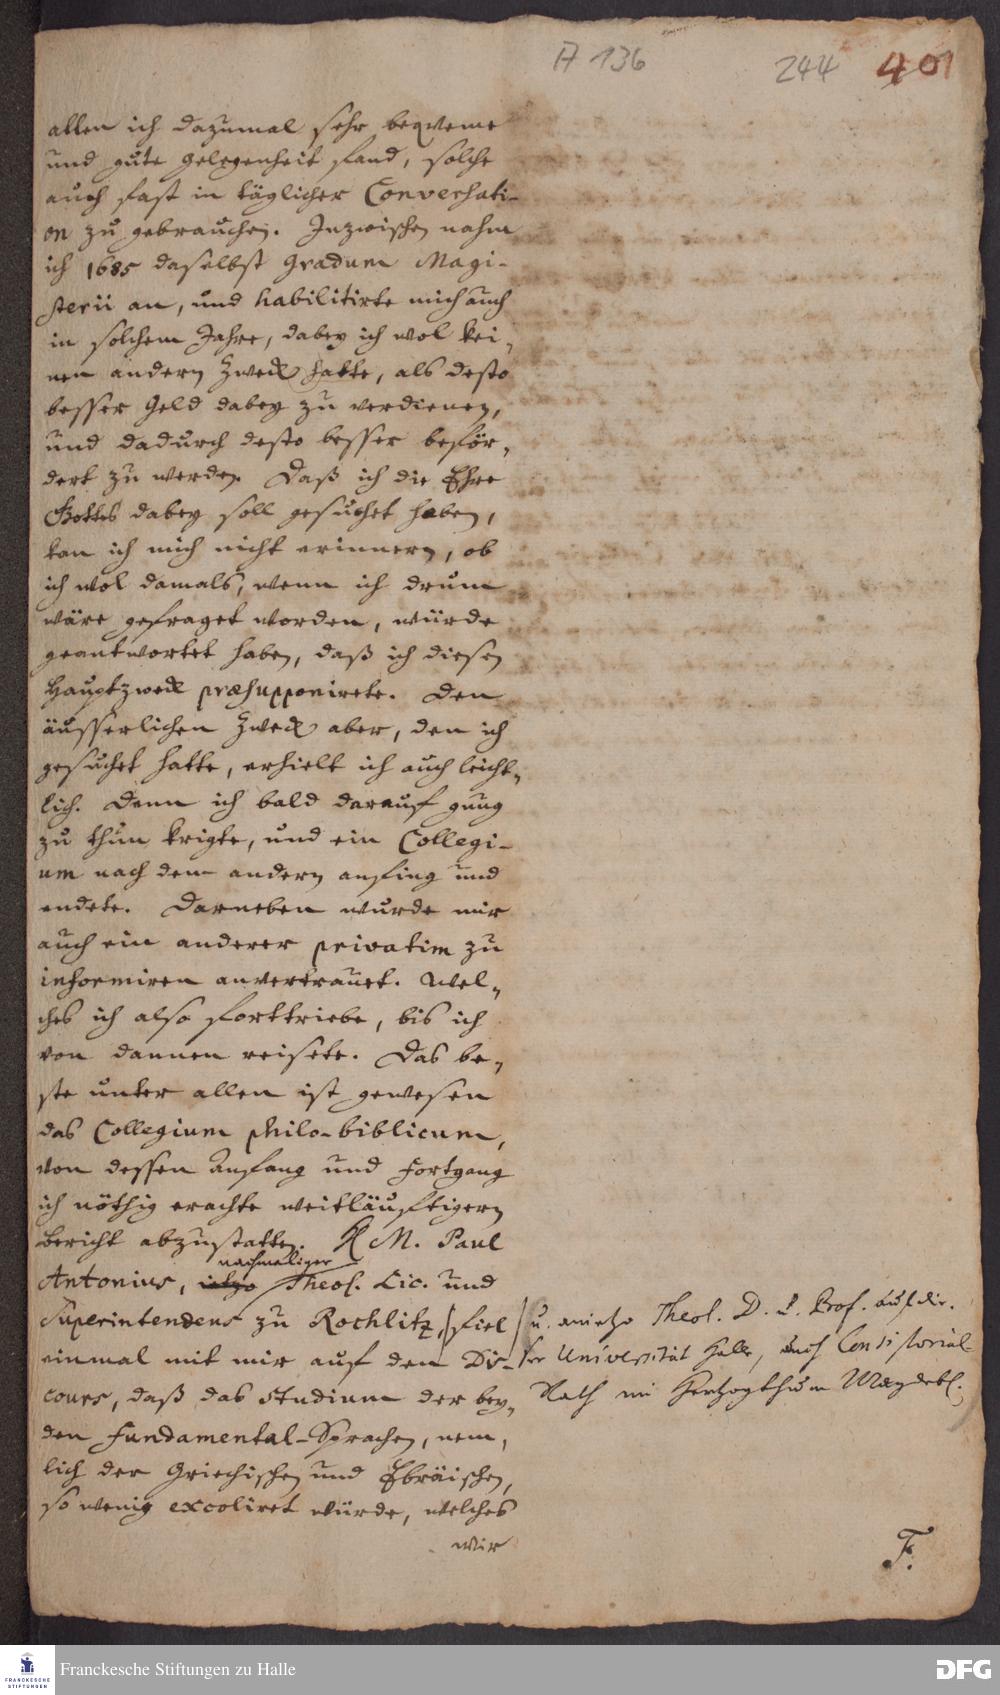 A 136
244 401
allen ich dazumal sehr beqveme
und gute gelegenheit fand, solche
auch fast in täglicher Conversati-
on zu gebrauchen. Inzwischen nahm
ich 1685 daselbst Gradum Magi-
sterii an, und habilitirte mich auch
in solchem Jahre, dabey ich wol kei-
nen andern Zweck hatte, als desto
besser Geld dabey zu verdienen,
und dadurch desto besser beför-
dert zu werden. Daß ich die Ehre
Gottes dabey soll gesuchet haben,
kan ich mich nicht erinnern, ob
ich wol damals, wenn ich drum
wäre gefraget worden, würde
geantwortet haben, daß ich diesen
Hauptzweck præsupponirete. Den
äusserlichen Zweck aber, den ich
gesuchet hatte, erhielt ich auch leicht-
lich. Denn ich bald darauf gnug
zu thun krigte, und ein Collegi-
um nach dem andern anfing und
endete. Darneben wurde mir
auch ein anderer privatim zu
informiren anvertrauet. Wel-
ches ich also forttriebe, bis ich
von dannen reisete. Das be-
ste unter allen ist gewesen
das Collegium philo-biblicum,
von dessen Anfang und Fortgang
ich nöthig erachte weitläuftigern
Bericht abzustatten. H M. Paul
nachmaliger
Antonius, ietzo Theol. Lic. und
Superintendens zu Rochlitz, fiel
u. anietzo Theol. D. u. Prof. auf die-
einmal mit mir auf den Dis-
ser Universität Halle, auch Consistorial-
cours, daß das studium der bey-
Rath im Hertzogthum Magdeb.
den Fundamental-Sprachen, nem-
lich der Griechischen und Ebräischen,
so wenig excoliret würde, welches
wir
F.
Franckesche Stiftungen zu Halle
FRANCKESCHE
STIFTUNGEN
DFG